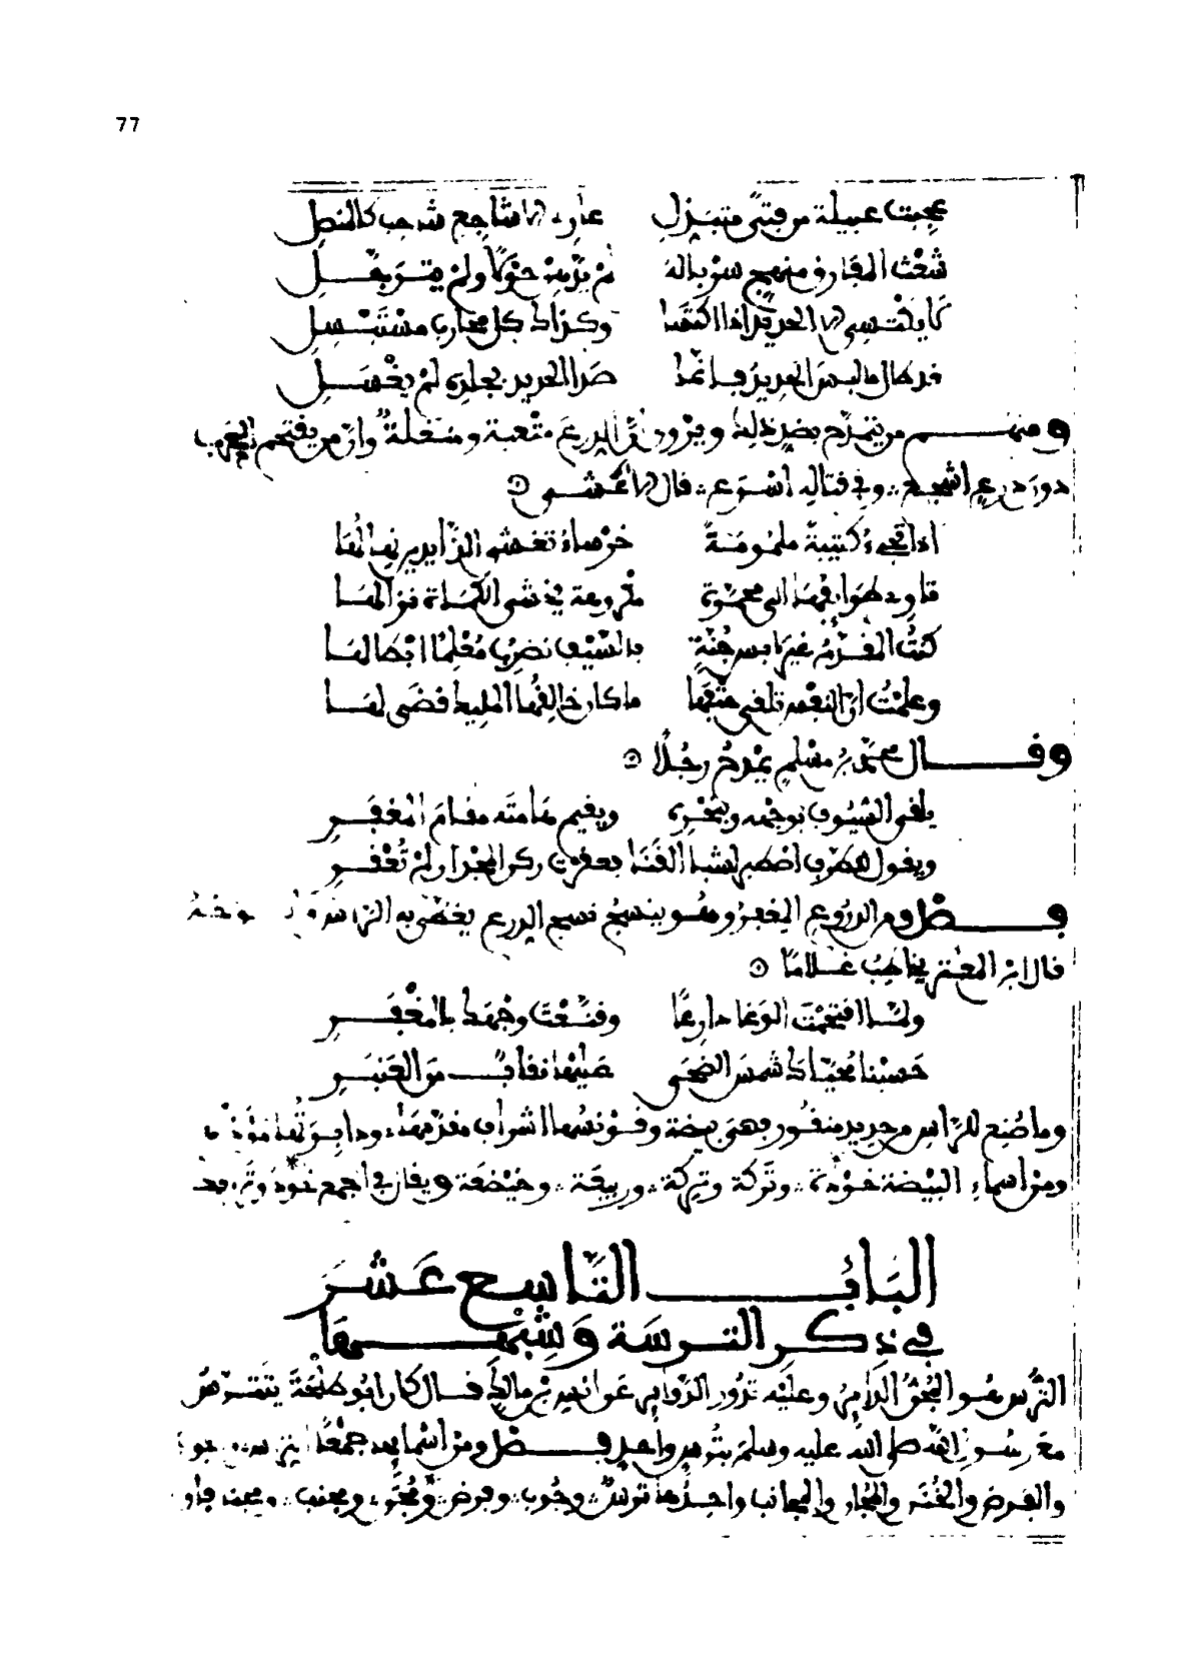 77
عجبت عبيلة من فتى متبذل عاري الاشاجع شاحب كالمنصل
شعث المفارق منهج سرباله لم يدهن حولا ولم يترجل
لا يكتسي الا الحديد اذا اكتسى وكذاك كل محارب مستبسل
قد طال ما لبس الحديد فانما صدأ الحديد بجلده لم يغسل
ومنهم من يتمدح بضد ذلك ويرون أن الدرع متعبة ومشغلة وان من يقتحم الحرب
دون درع اشجع وفي قتاله اسرع قال الاعشى
اذا تجيء كتيبة ملمومة خرساء تغشي الذايدين نهالها
تاوي طوايفها الى محمرة مكروهة يخشى الكماة نزالها
كنت المقدم غير لابس جنة بالسيف تضرب معلما ابطالها
وعلمت ان النفس تلقى حتفها ما كان خالقها المليك قضى لها
وقال محمد بن مسلم يمدح رجلا
يلقى السيوف بوجهه وبنحره ويقيم هامته مقام المغفر
ويقول للطرف اصطبر لشبا القنا فعقرت ركن المجد ان لم تعقر
فصل ومن الدروع المغفر وهو ينسج نسج الدرع يغطى به الراس
قال ابن المعتز يخاطب غلاما
ولما اقتحمت الوغا دارعا وقنعت وجهك بالمغفر
حسبنا محياك شمس الضحى عليها نقاب من العنبر
وما صنع للراس من حديد منقور فهي بيضة وقونسها اشراف مقدمها وداير
ومن اسماء البيضة خوذة وتركة وتريكة وربيعة وخيضعة ويقال في الجمع خوذ
الباب التاسع عشر
في ذكر الترسة وشبهها
الترس هو المجن الدامن وعليه تدور الدواير عن انس بن مالك قال كان ابو طلحة يتترس
مع رسول الله صلى الله عليه وسلم بترس واحد فصل ومن اسمايه جمعا
والفرض والمجان والمجانب واحدها ترس وجوب وفرض ومجن ومجنب